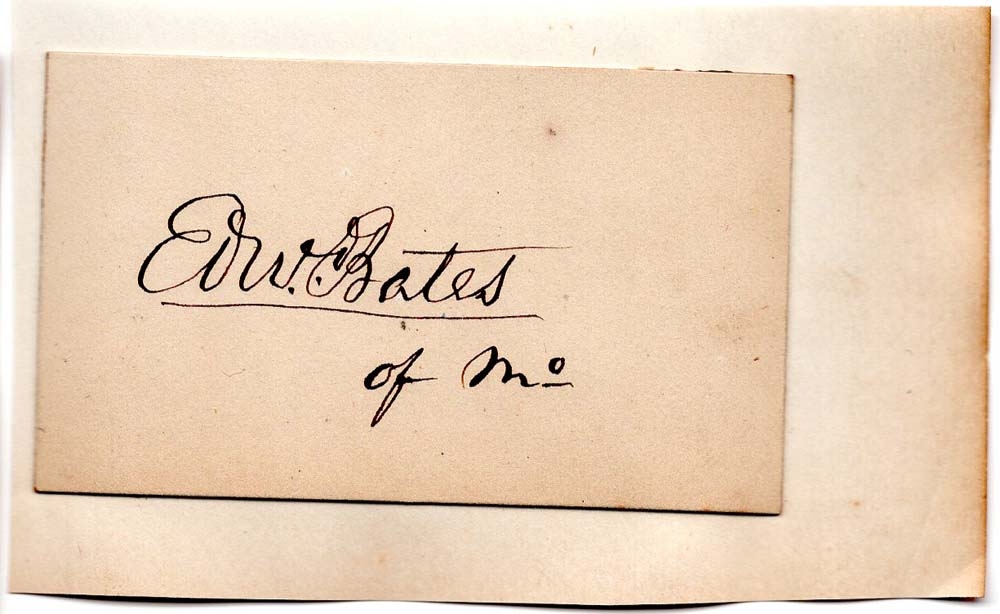 Edw. Bates
of Mo